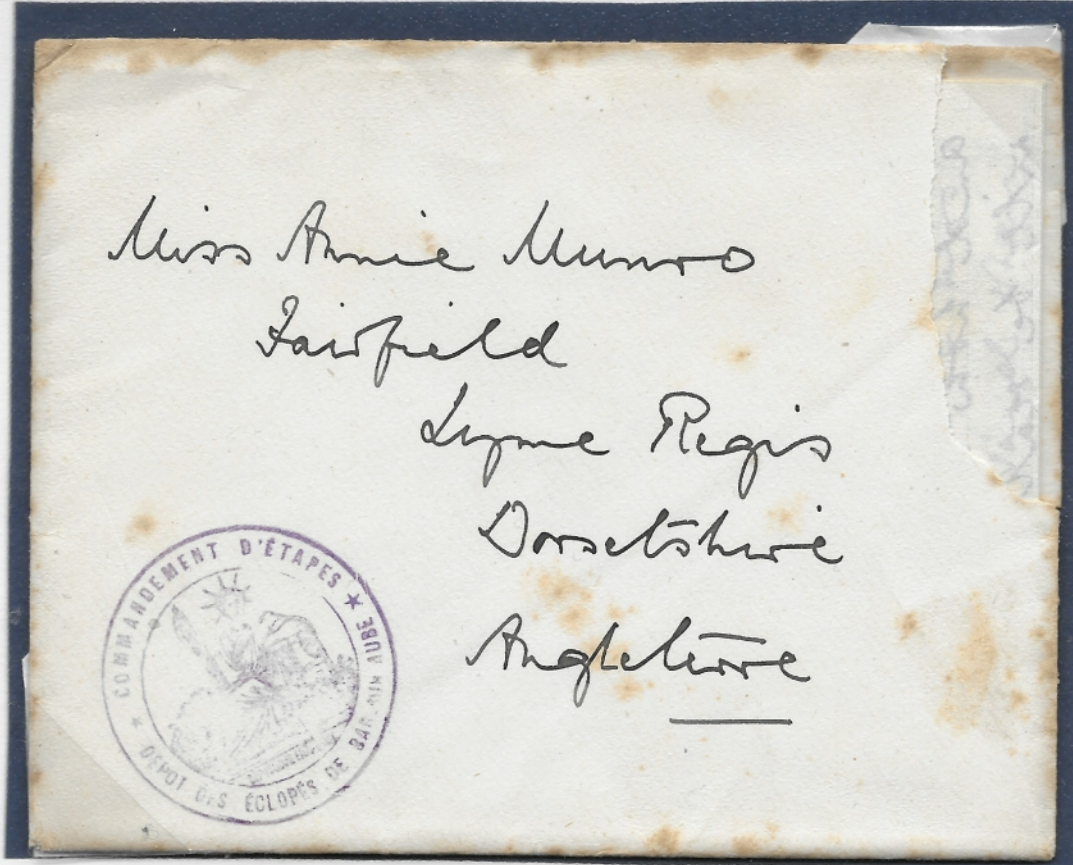 Miss Annie Munro
Fairfield
Lyme Regis
Dorsetshire
Angleterre
COMMANDEMENT D'ÉTAPES ★
DÉPOT DES ÉCLOPÉS DE BAR SUR AUBE ★